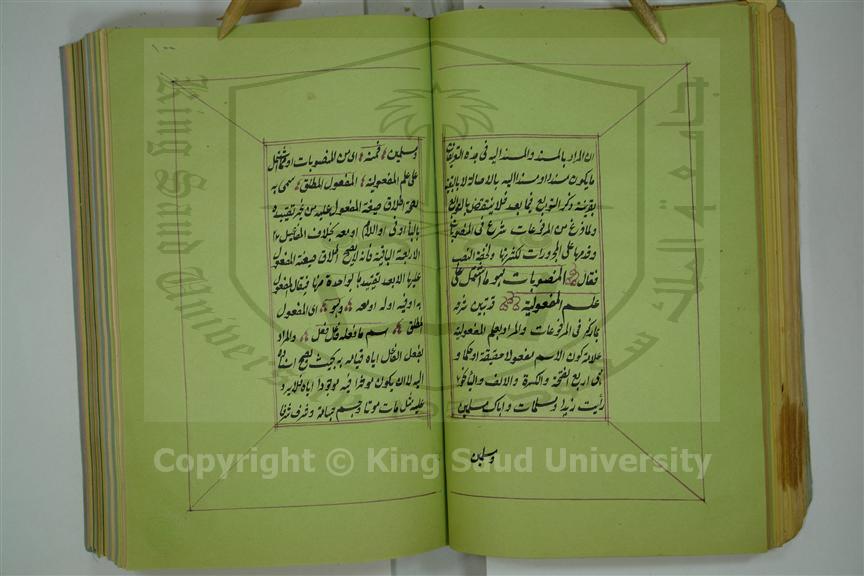 ان المراد بالمسند والمسند اليه في هذه التعريفات
ما يكون مسندا او مسندا اليه بالاصالة لا بالتبعية
بقرينة ذكر التوابع فيما بعد فلا ينتقض بالتوابع
ولما فرغ من المرفوعات شرع في المنصوبات
وقدمها على المجرورات لكثرتها ولخفة النصب
فقال المنصوبات هو ما اشتمل على
علم المفعولية قد تبين
في المرفوعات والمراد بعلم المفعولية
علامة كون الاسم مفعولا حقيقة او حكما و
هي اربع الفتحة والكسرة والالف والياء نحو
رأيت زيدا ومسلمات واباك ومسلمين
ومسلمين
١٠٠
ومسلمين فمنه اى من المنصوبات او مما اشتمل
على علم المفعولية المفعول المطلق سمى به
لصحة اطلاق صيغة المفعول عليه من غير تقييده
بالباء او فى او اللام او مع بخلاف المفاعيل
الاربعة الباقية فانه لا يصح اطلاق صيغة المفعول
عليها الا بعد تقييدها بواحدة منها فيقال المفعول
به او فيه او له او معه وهو اى المفعول
المطلق اسم ما فعله فاعل فعل والمراد
بفعل الفاعل اياه قيامه به بحيث يصح اسناده
اليه لا ان يكون مؤثرا فيه موجودا اياه فلا يرد
عليه مثل مات موتا وجسم جسامة وشرف شرفا
Copyright © King Saud University
King Saud University